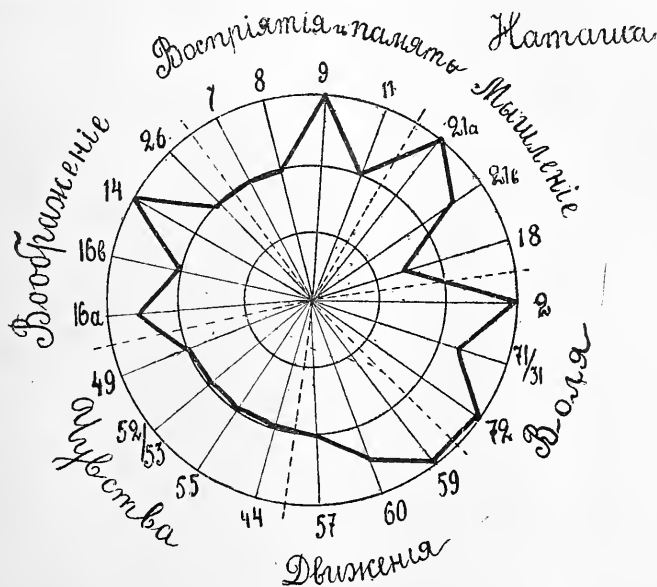 Воспріятія и память
Наташа
Мышленіе
Воля
Движенія
Чувства
Воображеніе
9
11
21а
21в
18
2
71/31
72
59
60
57
44
55
52/53
49
16а
16в
14
26
7
8